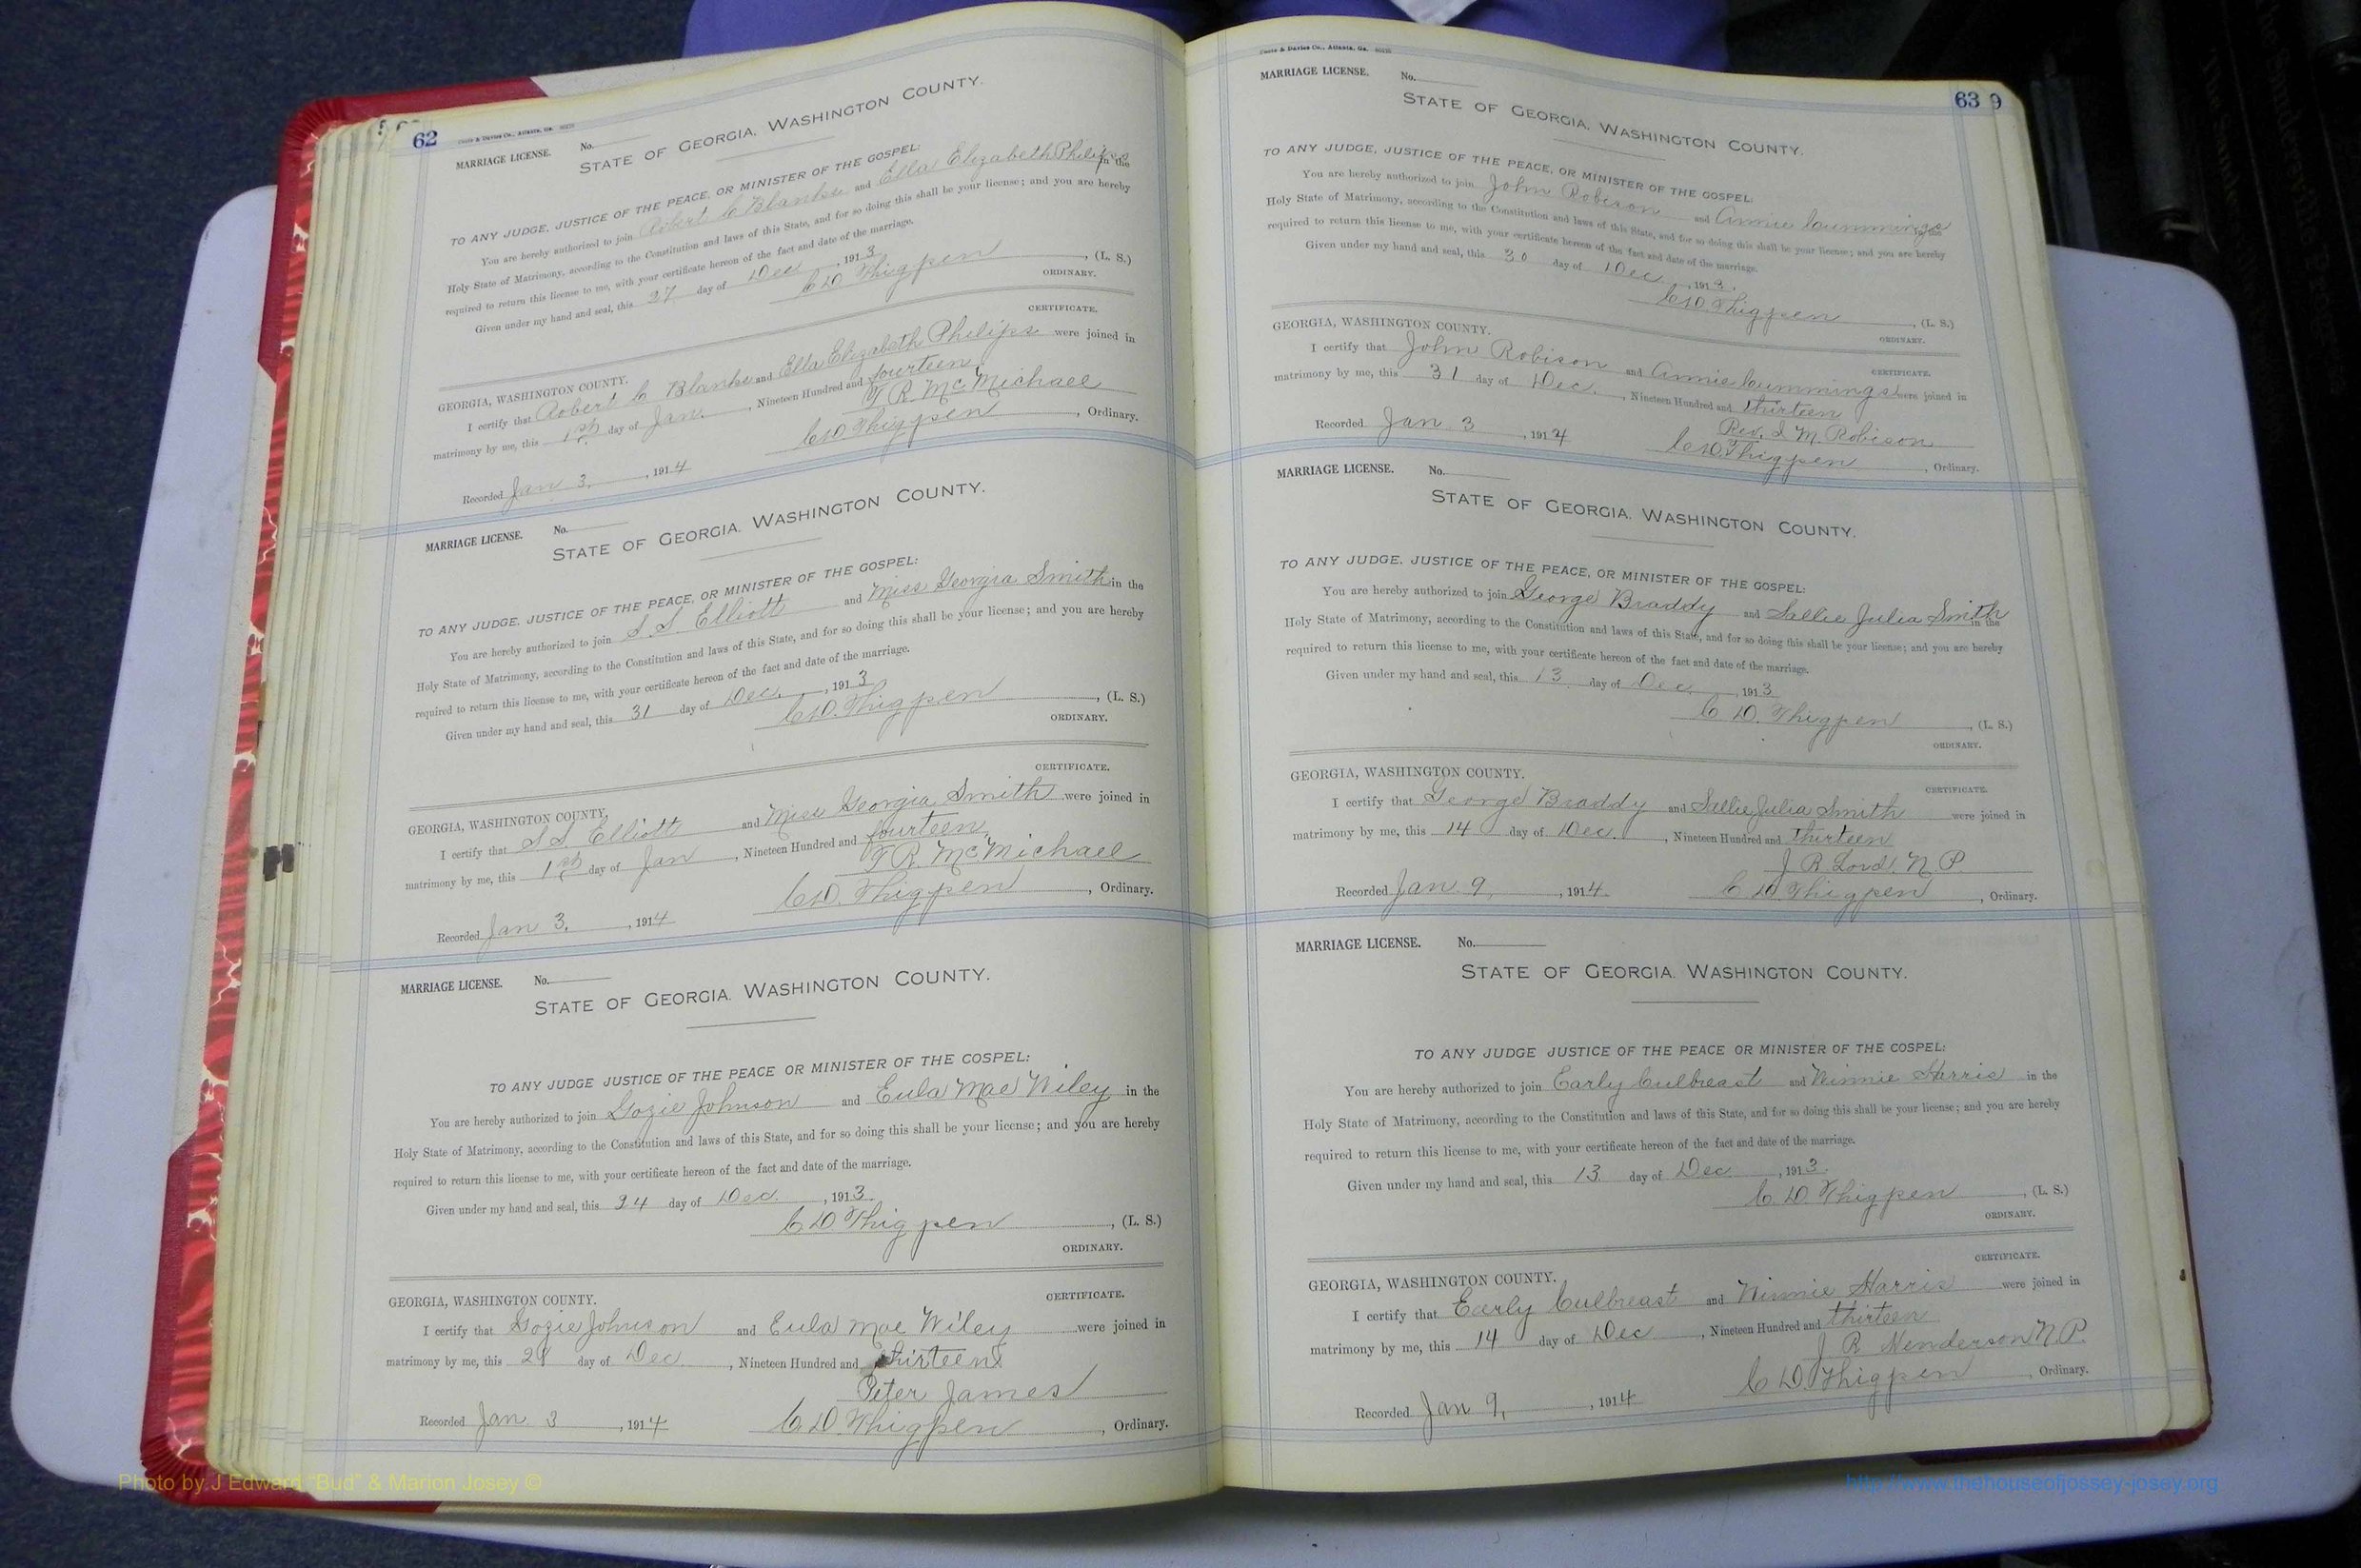 62
Foote & Davies Co., Atlanta, Ga.
MARRIAGE LICENSE. No.
STATE OF GEORGIA, WASHINGTON COUNTY.
TO ANY JUDGE, JUSTICE OF THE PEACE, OR MINISTER OF THE GOSPEL:
You are hereby authorized to join Robert C Blanks and Ella Elizabeth Philips in the
Holy State of Matrimony, according to the Constitution and laws of this State, and for so doing this shall be your license; and you are hereby
required to return this license to me, with your certificate hereon of the fact and date of the marriage.
Given under my hand and seal, this 27 day of Dec , 1913
C D Thigpen , (L. S.)
ORDINARY.
CERTIFICATE.
GEORGIA, WASHINGTON COUNTY.
I certify that Robert C Blanks and Ella Elizabeth Philips were joined in
matrimony by me, this 1st day of Jan. , Nineteen Hundred and fourteen.
T R McMichael
Recorded Jan 3. , 1914 C D Thigpen , Ordinary.
MARRIAGE LICENSE. No.
STATE OF GEORGIA, WASHINGTON COUNTY.
TO ANY JUDGE, JUSTICE OF THE PEACE, OR MINISTER OF THE GOSPEL:
You are hereby authorized to join S. S. Elliott and Miss Georgia Smith in the
Holy State of Matrimony, according to the Constitution and laws of this State, and for so doing this shall be your license; and you are hereby
required to return this license to me, with your certificate hereon of the fact and date of the marriage.
Given under my hand and seal, this 31 day of Dec. , 1913
C D. Thigpen , (L. S.)
ORDINARY.
CERTIFICATE.
GEORGIA, WASHINGTON COUNTY.
I certify that S S Elliott and Miss Georgia Smith were joined in
matrimony by me, this 1st day of Jan , Nineteen Hundred and fourteen,
T R McMichael
Recorded Jan 3. , 1914 C D. Thigpen , Ordinary.
MARRIAGE LICENSE. No.
STATE OF GEORGIA, WASHINGTON COUNTY.
TO ANY JUDGE JUSTICE OF THE PEACE OR MINISTER OF THE GOSPEL:
You are hereby authorized to join Gozie Johnson and Eula Mae Wiley in the
Holy State of Matrimony, according to the Constitution and laws of this State, and for so doing this shall be your license; and you are hereby
required to return this license to me, with your certificate hereon of the fact and date of the marriage.
Given under my hand and seal, this 24 day of Dec. , 1913.
C D Thigpen , (L. S.)
ORDINARY.
CERTIFICATE.
GEORGIA, WASHINGTON COUNTY.
I certify that Gozie Johnson and Eula Mae Wiley were joined in
matrimony by me, this 28 day of Dec , Nineteen Hundred and thirteen
Peter James
Recorded Jan 3 , 1914 C D. Thigpen , Ordinary.
63 9
Foote & Davies Co., Atlanta, Ga.
MARRIAGE LICENSE. No.
STATE OF GEORGIA, WASHINGTON COUNTY.
TO ANY JUDGE, JUSTICE OF THE PEACE, OR MINISTER OF THE GOSPEL:
You are hereby authorized to join John Robison and Annie Cummings in the
Holy State of Matrimony, according to the Constitution and laws of this State, and for so doing this shall be your license; and you are hereby
required to return this license to me, with your certificate hereon of the fact and date of the marriage.
Given under my hand and seal, this 30 day of Dec , 1913.
C D. Thigpen , (L. S.)
ORDINARY.
GEORGIA, WASHINGTON COUNTY.
CERTIFICATE.
I certify that John Robison and Annie Cummings were joined in
matrimony by me, this 31 day of Dec. , Nineteen Hundred and thirteen
Rev. I M. Robison
Recorded Jan 3 , 1914 C D. Thigpen , Ordinary.
MARRIAGE LICENSE. No.
STATE OF GEORGIA, WASHINGTON COUNTY.
TO ANY JUDGE, JUSTICE OF THE PEACE, OR MINISTER OF THE GOSPEL:
You are hereby authorized to join George Braddy and Sallie Julia Smith in the
Holy State of Matrimony, according to the Constitution and laws of this State, and for so doing this shall be your license; and you are hereby
required to return this license to me, with your certificate hereon of the fact and date of the marriage.
Given under my hand and seal, this 13 day of Dec , 1913
C D. Thigpen , (L. S.)
ORDINARY.
GEORGIA, WASHINGTON COUNTY.
CERTIFICATE.
I certify that George Braddy and Sallie Julia Smith were joined in
matrimony by me, this 14 day of Dec. , Nineteen Hundred and thirteen
J R Lord. N P.
Recorded Jan 9, , 1914. C D Thigpen , Ordinary.
MARRIAGE LICENSE. No.
STATE OF GEORGIA, WASHINGTON COUNTY.
TO ANY JUDGE JUSTICE OF THE PEACE OR MINISTER OF THE GOSPEL:
You are hereby authorized to join Early Culbreast and Winnie Harris in the
Holy State of Matrimony, according to the Constitution and laws of this State, and for so doing this shall be your license; and you are hereby
required to return this license to me, with your certificate hereon of the fact and date of the marriage.
Given under my hand and seal, this 13 day of Dec , 1913.
C. D. Thigpen , (L. S.)
ORDINARY.
CERTIFICATE.
GEORGIA, WASHINGTON COUNTY.
I certify that Early Culbreast and Winnie Harris were joined in
matrimony by me, this 14 day of Dec , Nineteen Hundred and thirteen
J R Henderson N.P.
Recorded Jan 9, , 1914 C D. Thigpen Ordinary.
Photo by J Edward "Bud" & Marion Josey ©
http://www.thehouseofjossey-josey.org